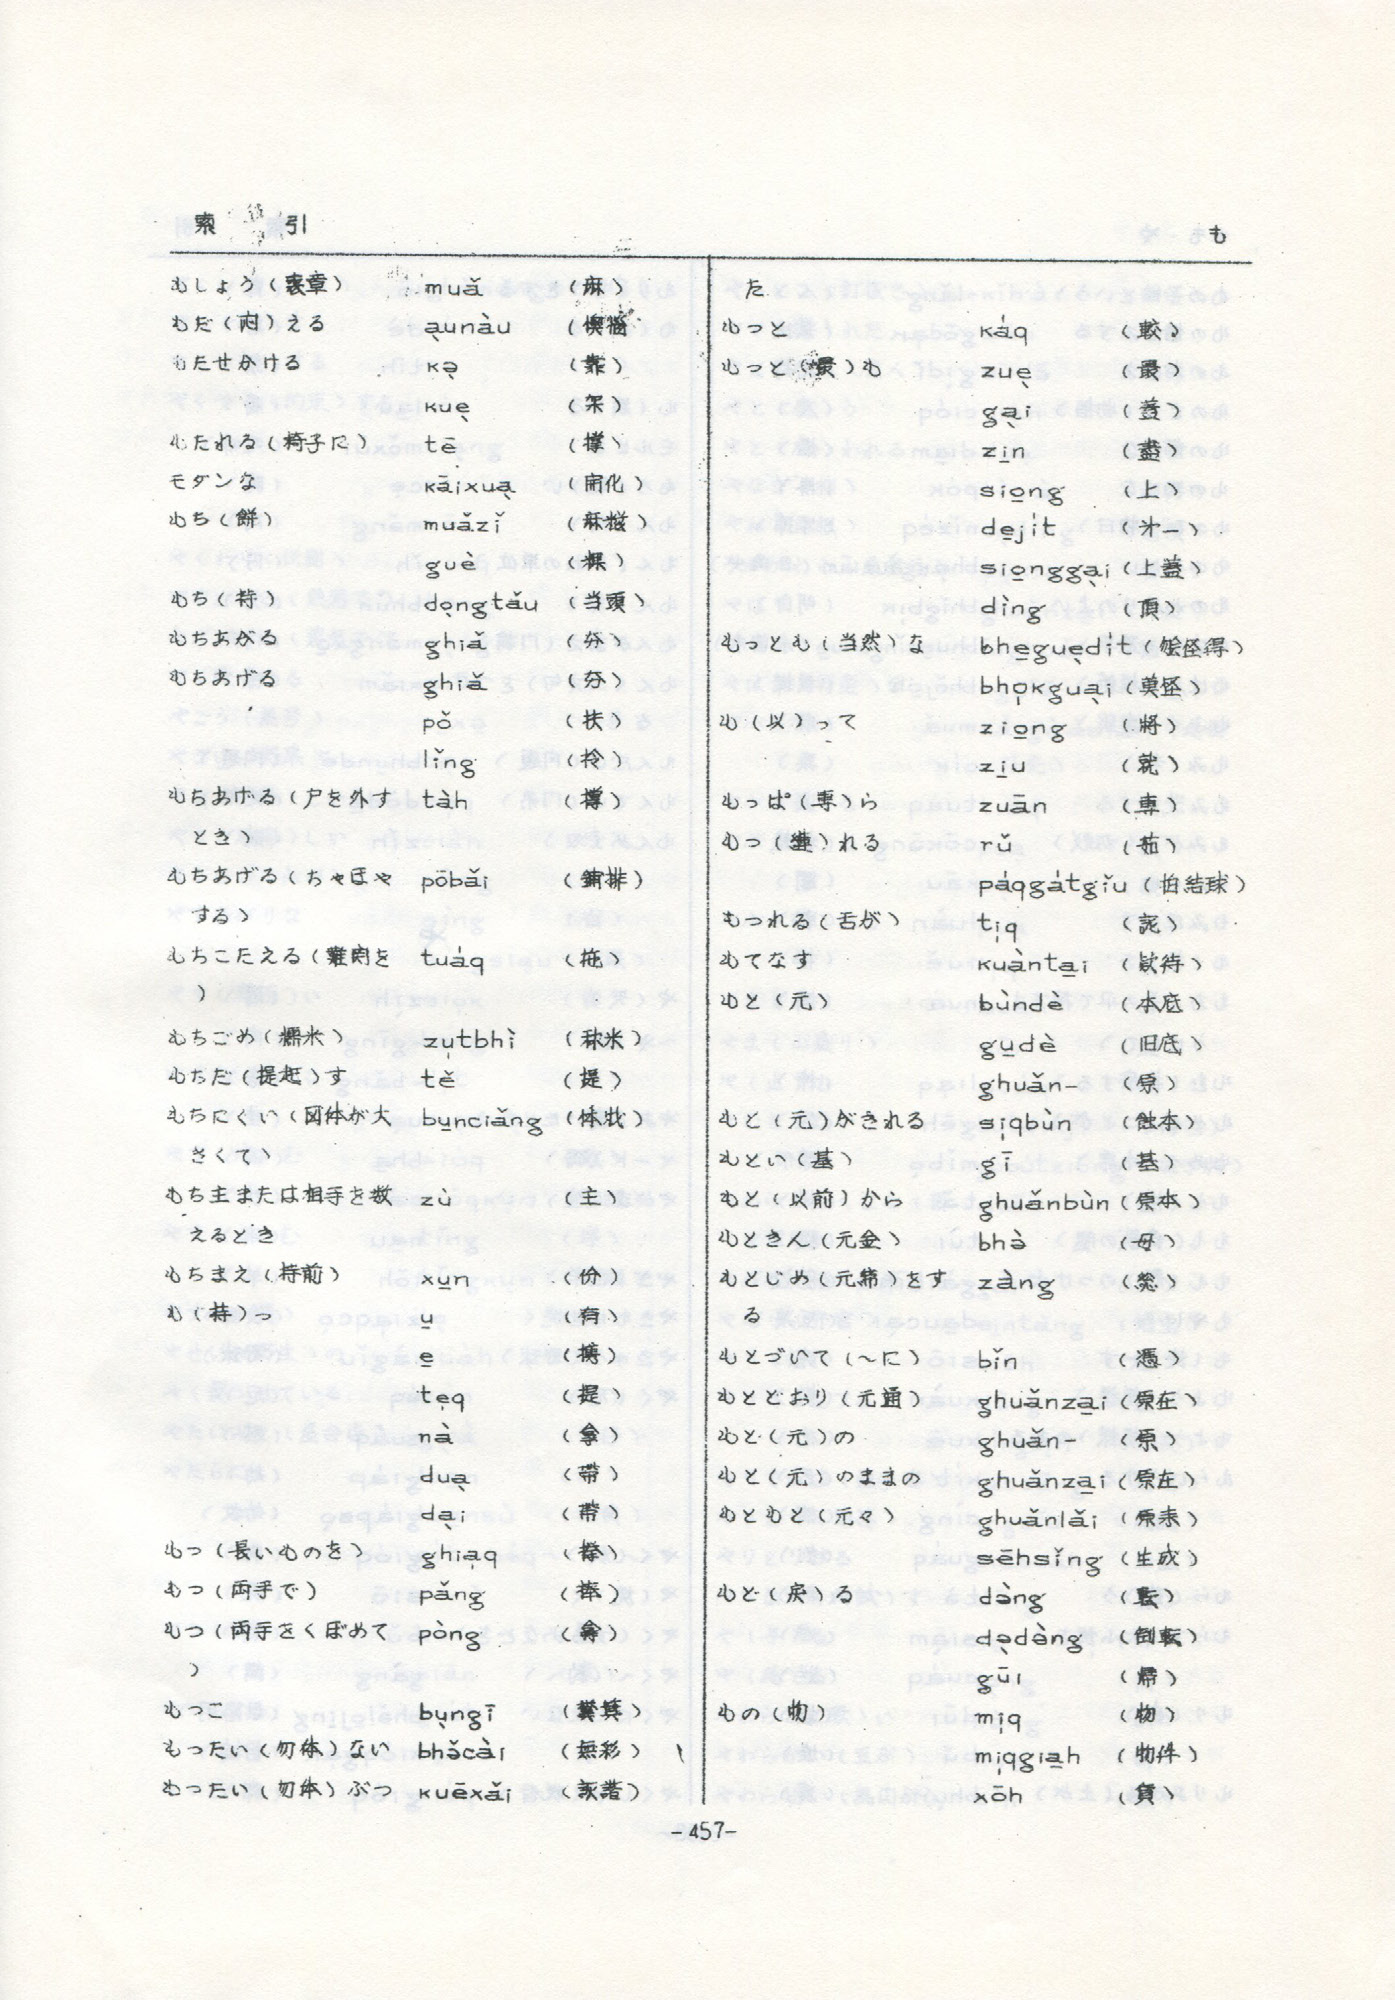 索 引
も
もしょう（喪章） muǎ （麻）
もだ（悶）える a̤unàu （懊惱）
もたせかける кə̤ （靠）
кue̤ （架）
もたれる（椅子に） tē （撑）
モダンな кāixua̤ （開化）
もち（餅） muǎzǐ （麻糍）
guè （粿）
もち（持） do̤ngtǎu （当頭）
もちあがる ghiǎ （夯）
もちあげる ghiǎ （夯）
pǒ （扶）
lǐng （拎）
もちあげる（戸を外す tàh
とき）
もちあげる（ちゃほや pōbǎi （鋪排）
する）
もちこたえる（難関を tuáq （拖）
）
もちごめ（糯米） zu̍tbhì （秫米）
もちだ（提起）す tě （提）
もちにくい（図体が大 bu̱nciǎng （体状）
きくて）
もち主または相手を数 zù （主）
えるとき
もちまえ（持前） xu̱n （份）
も（持）つ u̱ （有）
e̱ （携）
te̍q （提）
nà （拿）
dua̤ （帶）
da̤i （帯）
もつ（長いものを） ghia̍q
もつ（両手で） pǎng （捧）
もつ（両手をくぼめて pòng
）
もっこ bṳngī （糞箕）
もったい（勿体）ない bhə̌cài （無彩）
もったい（勿体）ぶつ кuēxǎi （詼諧）
た
もっと кáq （較）
もっと（最）も zue̤ （最）
ga̤i （蓋）
zi̱n （盡）
sio̱ng （上）
de̱jít （才一）
sio̱ngga̤i （上蓋）
dìng （頂）
もっとも（当然）な bhe̱gue̤dít （㑾怪得）
bho̍кgua̤i （莫怪）
も（以）って zio̱ng （將）
zi̱u （就）
もっぱ（専）ら zuān （専）
もつ（縺）れる rǔ （茹）
páqgátgǐu （拍結球）
もつれる（舌が） ti̍q
もてなす кuànta̱i （欵待）
もと（元） bùndè （本底）
gu̱dè （旧底）
ghuǎn- （原）
もと（元）がきれる si̍qbùn （蝕本）
もとい（基） gī （基）
もと（以前）から ghuǎnbùn （原本）
もときん（元金） bhə̀ （母）
もとじめ（元締）をす zàng （総）
る
もとづいて（～に） bǐn （憑）
もととおり（元通） ghuǎnza̱i （原在）
もと（元）の ghuǎn- （原）
もと（元）のままの ghuǎnza̱i （原在）
もともと（元々） ghuǎnlǎi （原来）
sēhsǐng （生成）
もど（戻）る də̀ng （転）
də̤də̀ng （倒転）
gūi （帰）
もの（物） mi̍q （物）
mi̍qgia̱h （物件）
xə̄h （貨）
-457-